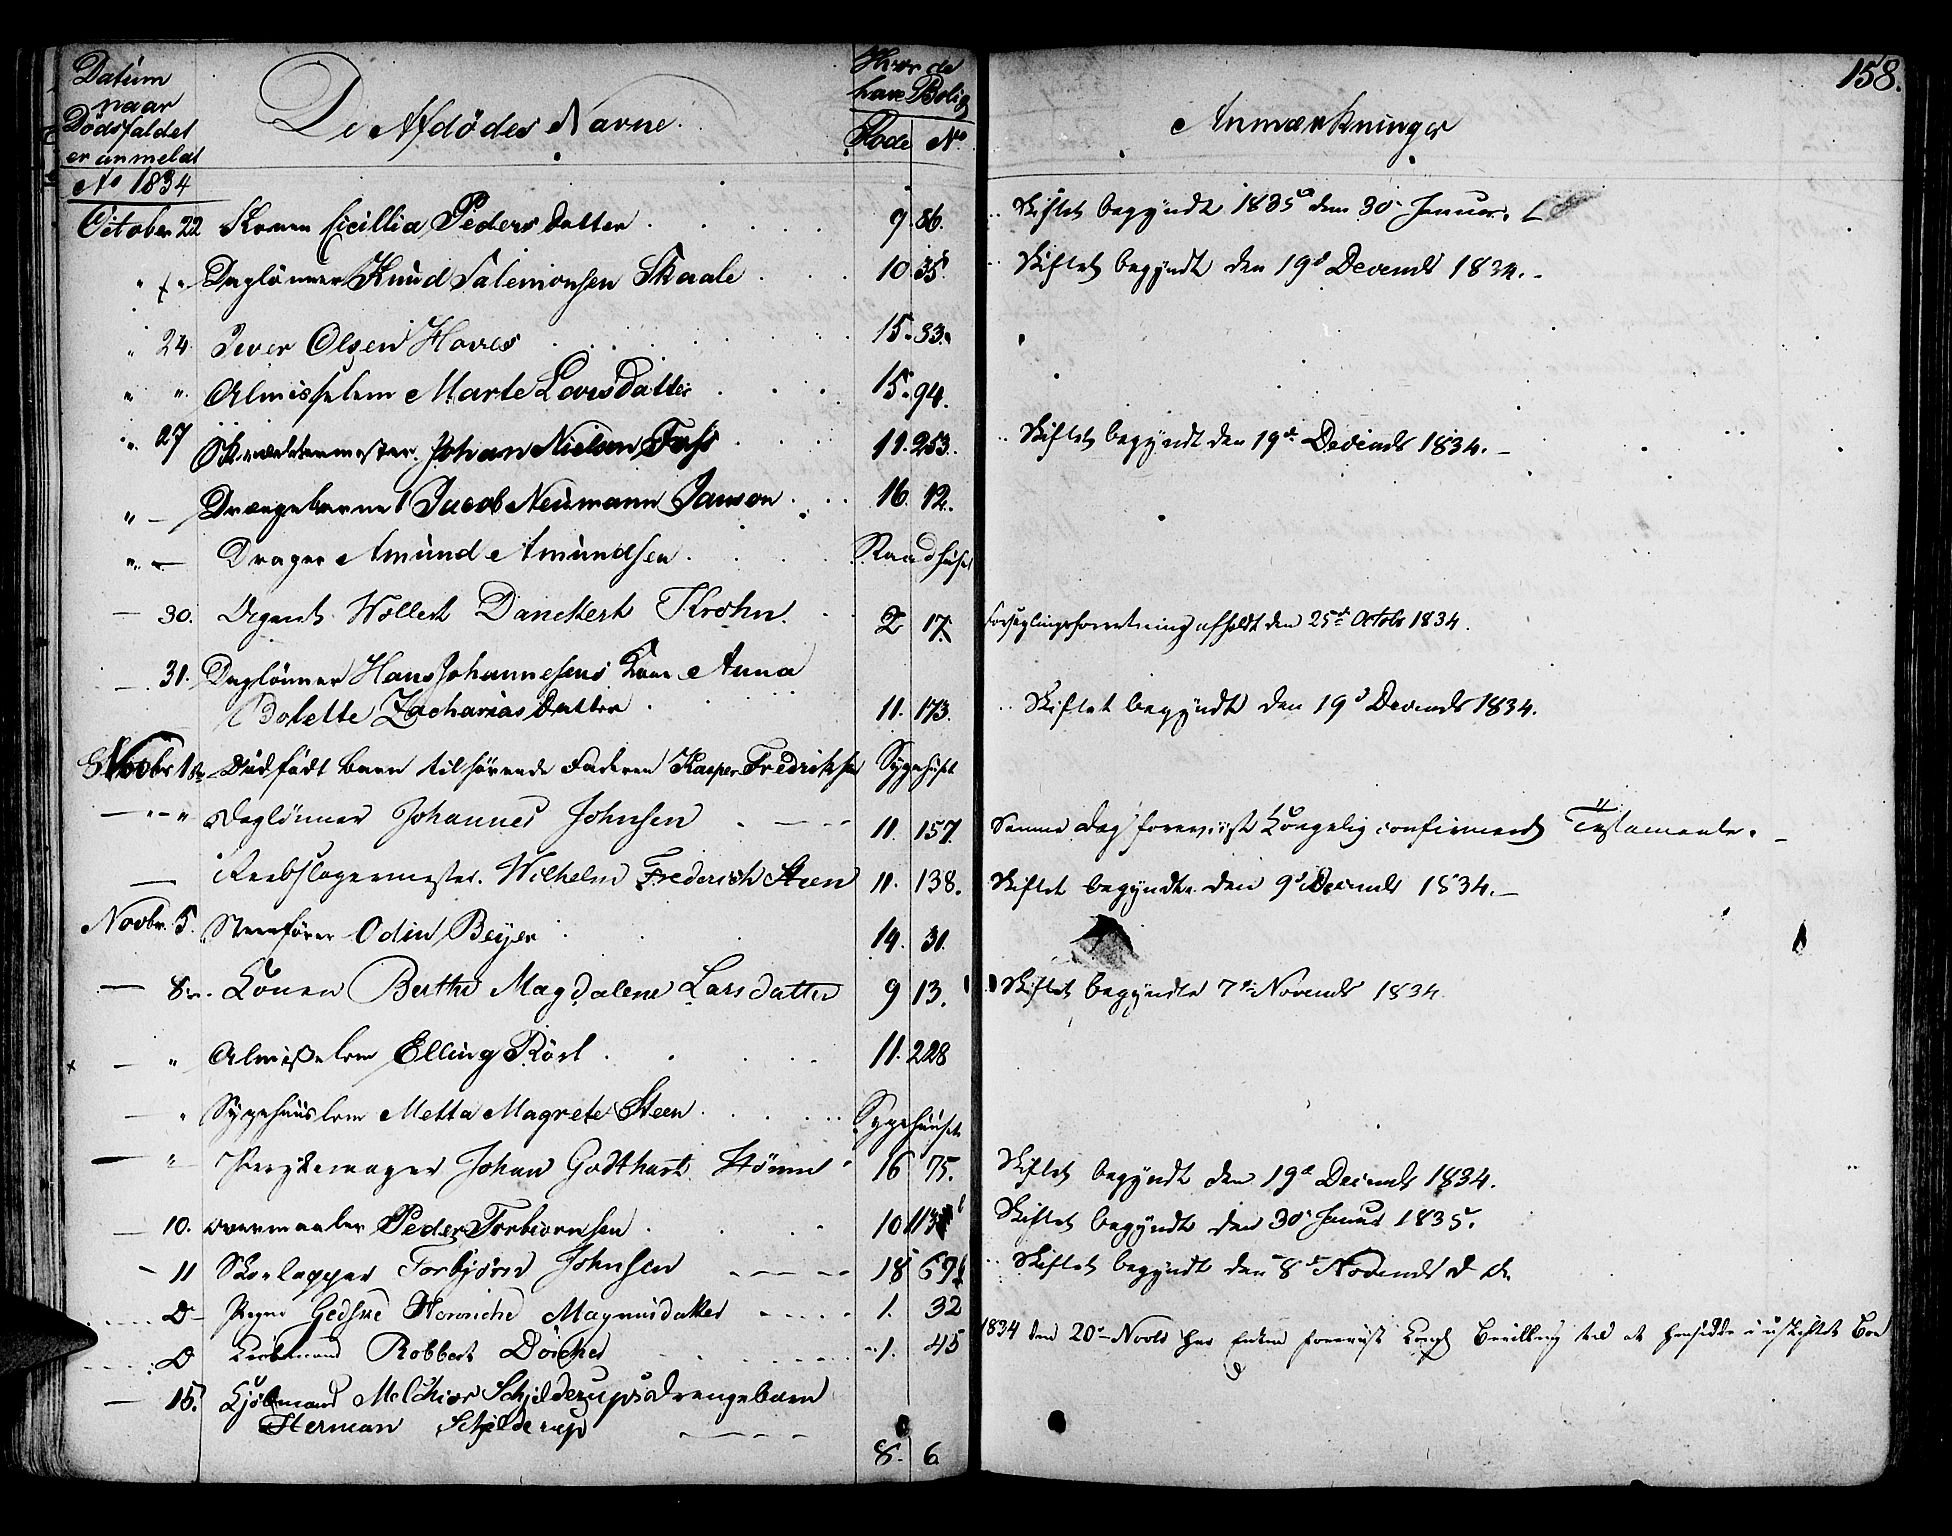 158.
Datum naar Dødsfaldet er anmeldt
De Afdødes Navne.
Hvor de have Bolig
Rode No
Anmærkninger
Ao 1834
October 22 Konen Cicillia Peders datter 9. 86. Skiftet begyndt 1835 den 30 Januar.
" " Daglönner Knud Salemonsen Skaale 10. 35. Skiftet begyndt den 19d Decembr 1834.
" 24 Iver Olsen Hovres 15. 33.
" " Almisselem Marte Larsdatter 15. 94.
" 27 Skræddermester Johan Nielsen Foss 11. 253. Skiftet begyndt den 19de Decembr 1834.
" — Drængebarnet Jacob Neumann Janson 16. 12.
" — Drager Amund Amundsen Raadhuset
— 30. Organist Wollert Danckert Krohn. 2 17. Forseglingsforretning afholdt den 25de Octobr 1834.
— 31. Daglönner Hans Johannesens Kone Anna
Bolette Zacharias datter 11. 173. Skiftet begyndt den 19d Decembr 1834.
Novbr 1ste Dödfödt barn tilhørende Faderen Kasper Fredriksen Sygehuset
— " Daglönner Johannes Johnsen 11. 157. Samme dag foreviist Kongelig confirmerede Testamente.
— Reebslagermester. Wilhelm Frederich Steen 11. 138. Skiftet begyndte den 9d Decembr 1834.
Novbr. 5. Steenfører Odin Beyer 14. 31.
— 8. Konen Berthe Magdalene Larsdatter 9 13. Skiftet begyndte 7de Novembr 1834.
x — " Almisselem Elling Rörl 11. 228
— " Sygehuuslem Metta Magrete Steen Sygehuuset
— " Perykemager Johan Godthart 16 75. Skiftet begyndt den 19d Decembr 1834.
— 10. Peder Torbiörnsen 10 Skiftet begyndt den 30 Januar 1835.
— 11 Skolapper Torbjörn Johnsen 18 Skiftet begyndt den 8de Novembr
D Pigen Gedske Magnusdatter 1. 32
D Kiöbmand Robbert Döscher 1. 45 1834 den 20de Novbr har Enken foreviist Kongl Bevilling til at hensidde i uskiftet Boe
— 15. Kjøbmand Melchior Schjelderups drengebarn
Herman Schjelderup 8. 6